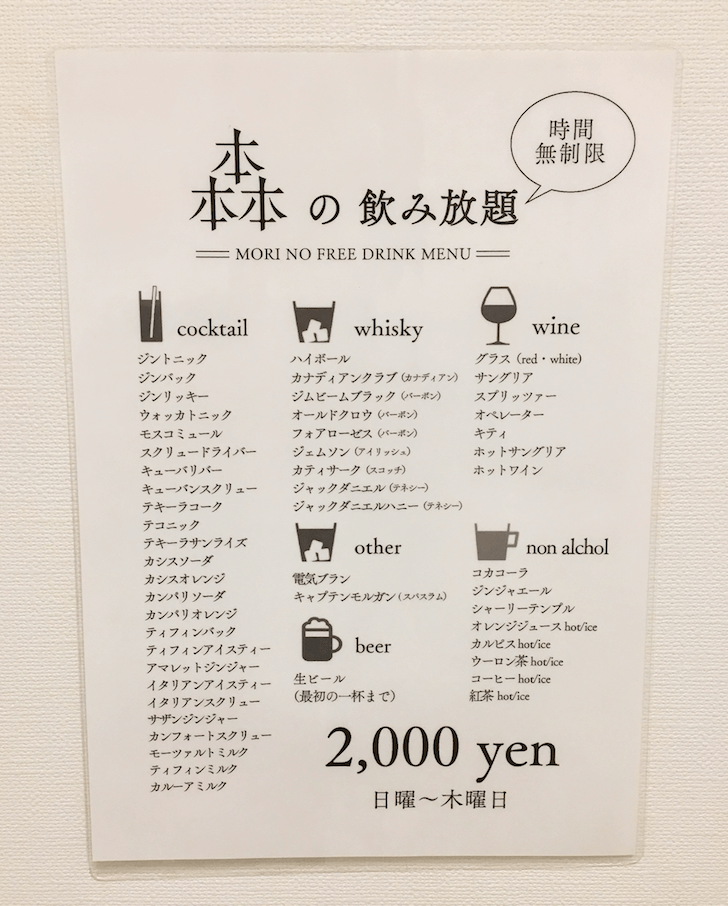 時間
無制限
本
本本の飲み放題
MORI NO FREE DRINK MENU
cocktail
ジントニック
ジンバック
ジンリッキー
ウォッカトニック
モスコミュール
スクリュードライバー
キューバリバー
キューバンスクリュー
テキーラコーク
テコニック
テキーラサンライズ
カシスソーダ
カシスオレンジ
カンパリソーダ
カンパリオレンジ
ティフィンバック
ティフィンアイスティー
アマレットジンジャー
イタリアンアイスティー
イタリアンスクリュー
サザンジンジャー
カンフォートスクリュー
モーツァルトミルク
ティフィンミルク
カルーアミルク
whisky
ハイボール
カナディアンクラブ（カナディアン）
ジムビームブラック（バーボン）
オールドクロウ（バーボン）
フォアローゼス（バーボン）
ジェムソン（アイリッシュ）
カティサーク（スコッチ）
ジャックダニエル（テネシー）
ジャックダニエルハニー（テネシー）
other
電気ブラン
キャプテンモルガン（スパスラム）
beer
生ビール
（最初の一杯まで）
wine
グラス（red・white）
サングリア
スプリッツァー
オペレーター
キティ
ホットサングリア
ホットワイン
non alchol
コカコーラ
ジンジャエール
シャーリーテンプル
オレンジジュース hot/ice
カルピス hot/ice
ウーロン茶 hot/ice
コーヒー hot/ice
紅茶 hot/ice
2,000 yen
日曜〜木曜日